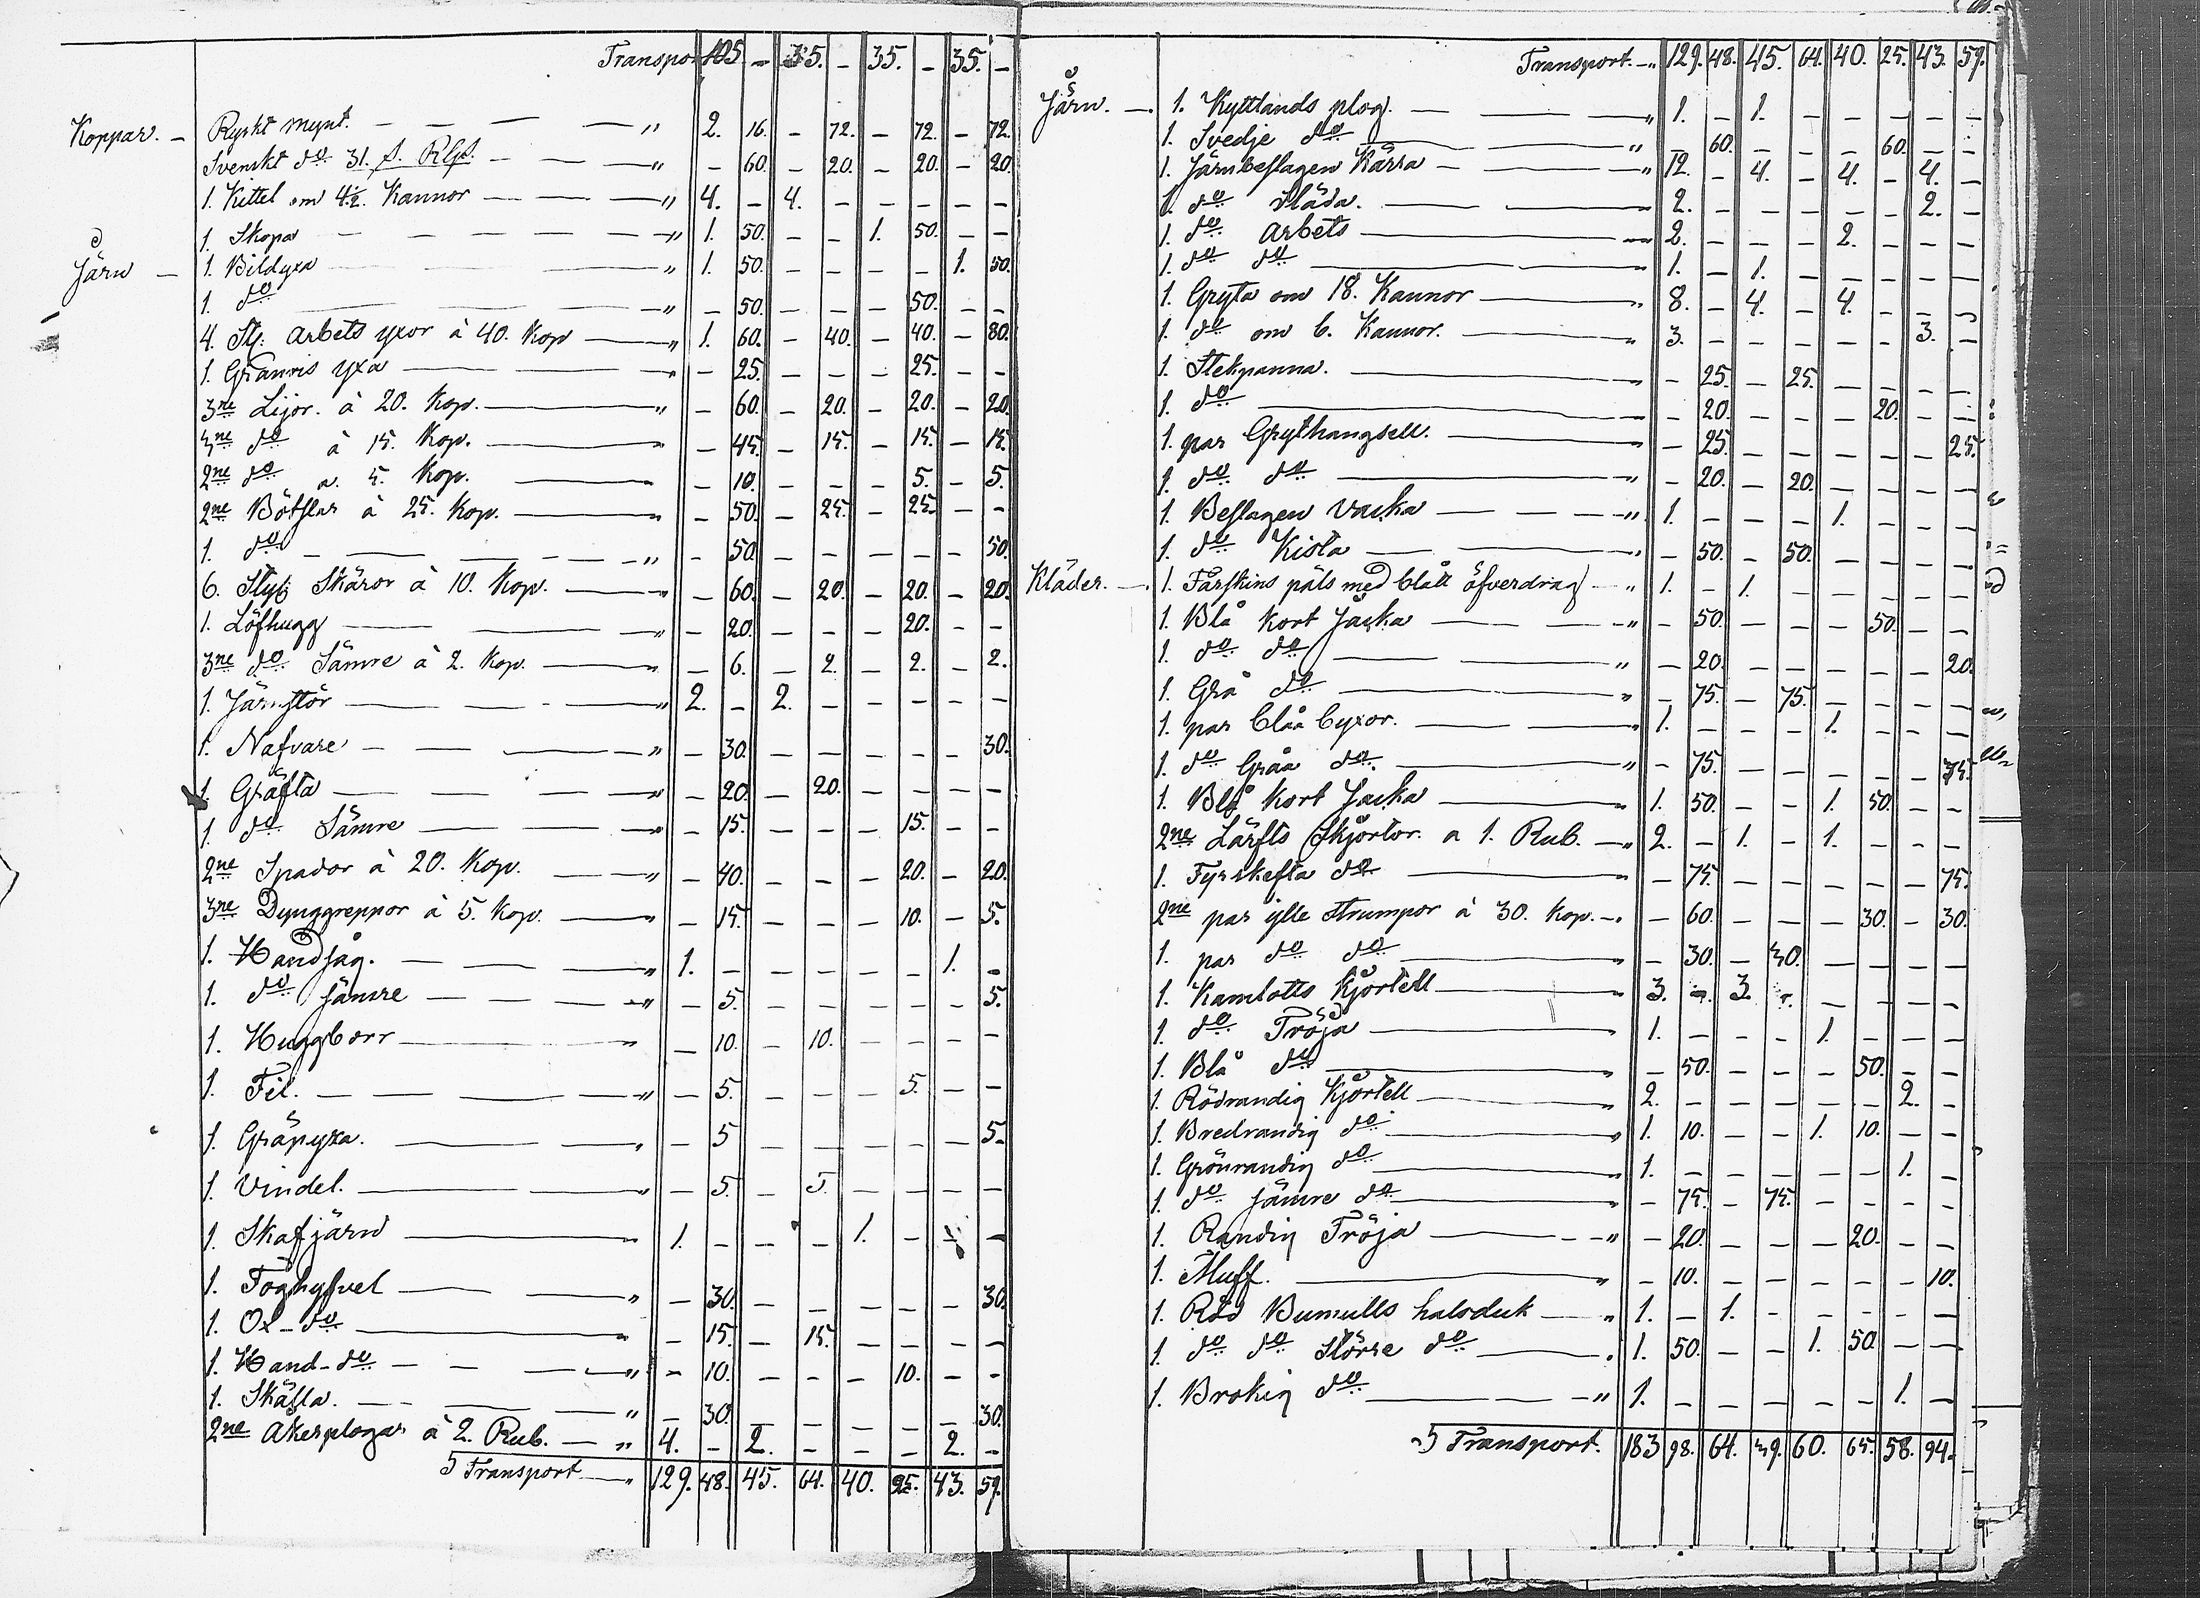 Transport 105. — 35. — 35. — 35. —
Koppar. — Ryskt Mynt. — — — — " 2. 16. — 72. — 72. — 72.
Svenskt do 31. s. Rgs. — — — " — 60. — 20. — 20. — 20.
1. Kittel om 4½. Kannor — — — " 4. — 4. — — — — —
1. Skopa — — — — — " 1. 50. — — 1. 50. — —
Järn — 1. Bildyxa — — — " 1. 50. — — — — 1. 50.
1. do — — — " — 50. — — — 50. — —
4. St. Arbets yxor à 40. Kop — " 1. 60. — 40. — 40. — 80.
1. Granris yxa — — " — 25. — — — 25. — —
3ne Lijor. à 20. Kop. — " — 60. — 20. — 20. — 20.
3ne do à 15. Kop. — " — 45. — 15. — 15. — 15.
2ne do a. 5. Kop. — " — 10. — — — 5. — 5.
2ne Bötslar à 25. Kop. — " — 50. — 25. — 25. — —
1. do — — — — " — 50. — — — — — 50.
6. Styg Skäror à 10. Kop. — " — 60. — 20. — 20. — 20.
1. Löfhugg — — " — 20. — — — 20. — —
3ne do Sämre à 2. Kop. — " — 6. — 2. — 2. — 2.
1. Järnstör — — — " 2. — 2. — — — — —
1. Nafvare — — — " — 30. — — — — — 30.
1. Gräfta — — — " — 20. — 20. — — — —
1. do Sämre — — — " — 15. — — — 15. — —
2ne Spador à 20. Kop. — — " — 40. — — — 20. — 20.
3ne Dynggreppor à 5. Kop. — " — 15. — — — 10. — 5.
1. Handsåg. — — — " 1. — — — — — 1. —
1. do Sämre — — — " — 5. — — — — — 5.
1. Huggborr — — " — 10. — 10. — — — —
1. Fil. — — — — " — 5. — — — 5. — —
1. Gräpyxa. — — " — 5 — — — — — 5.
1. Vindel. — — " — 5. — 5. — — — —
1. Skafjärn — — " 1. — — — 1. — — —
1. Foghyfvel — — " — 30. — — — — — 30.
1. Ox-do — — " — 15. — 15. — — — —
1. Hand-do — — — " — 10. — — — 10. — —
1. Skäfla. — — — " — 30. — — — — — 30.
2ne Åkerplogar à 2. Rub. — " 4. — 2. — — — 2. —
5 Transport — " 129. 48. 45. 64. 40. 25. 43. 59.
Transport. — " 129. 48. 45. 64. 40. 25. 43. 59.
Järn. — 1. Kyttlands plog. — — " 1. — 1. — — — — —
1. Svedje do — " — 60. — — — 60. — —
1. Järnbeslagen Kärra — — " 12. — 4. — 4. — 4. —
1. do Släda. — — " 2. — — — — — 2. —
1. do Arbets — — " 2. — — — 2. — — —
1. do do — — " 1. — 1. — — — — —
1. Gryta om 18. Kannor — " 8. — 4. — 4. — — —
1. do om 6. Kannor. — " 3. — — — — — 3. —
1. Stekpanna. — — " — 25. — 25. — — — —
1. do — — " — 20. — — — 20. — —
1. par Grythangsell. — " — 25. — — — — — 25.
1. do do — " — 20. — 20. — — — —
1. Beslagen Vacka — — — " 1. — — — 1. — — —
1. do Kista — — " — 50. — 50. — — — —
Kläder. — 1. Fårskins päls med blått öfverdrag — " 1. — 1. — — — — —
1. Blå Kort Jacka — — " — 50. — — — 50. — —
1. do do — — " — 20. — — — — — 20.
1. Grå do — — " — 75. — 75. — — — —
1. par blåa byxor. — — " 1. — — — 1. — — —
1. do Gråa do. — " — 75. — — — — — 75.
1. Blå Kort Jacka — " 1. 50. — — 1. 50. — —
2ne Lärfts Skjortor. a 1. Rub. — " 2. — 1. — 1. — — —
1. Fyrskefta do — " — 75. — — — — — 75.
2ne par ylle strumpor à 30. Kop. — " — 60. — — — 30. — 30.
1. par do do — " — 30. — 30. — — — —
1. Kamlotts Kjortell — " 3. — 3. — — — — —
1. do Tröja — " 1. — — — 1. — — —
1. Blå do — " — 50. — — — 50. — —
1. Rödrandig Kjortell — " 2. — — — — — 2. —
1. Bredrandig do — " 1. 10. — — 1. 10. — —
1. Grönrandig do — " 1. — — — — — 1. —
1. do Sämre do — " — 75. — 75. — — — —
1. Randig Tröja — — " — 20. — — — 20. — —
1. Muff. — " — 10. — — — — — 10.
1. Röd Bumulls halsduk — " 1. — 1. — — — — —
1. do do Större do — " 1. 50. — — 1. 50. — —
1. Brokig do — — " 1. — — — — — 1. —
5 Transport. 183 98. 64. 39. 60. 65. 58. 94.